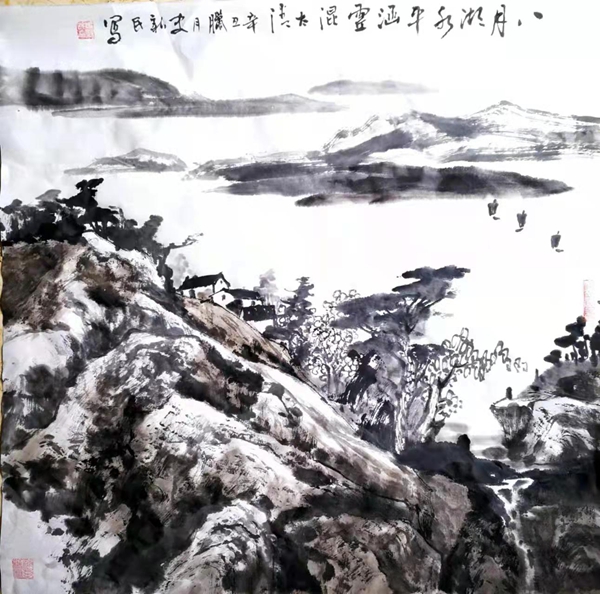 八月湖水平涵虚混太清辛丑臘月史新民寫